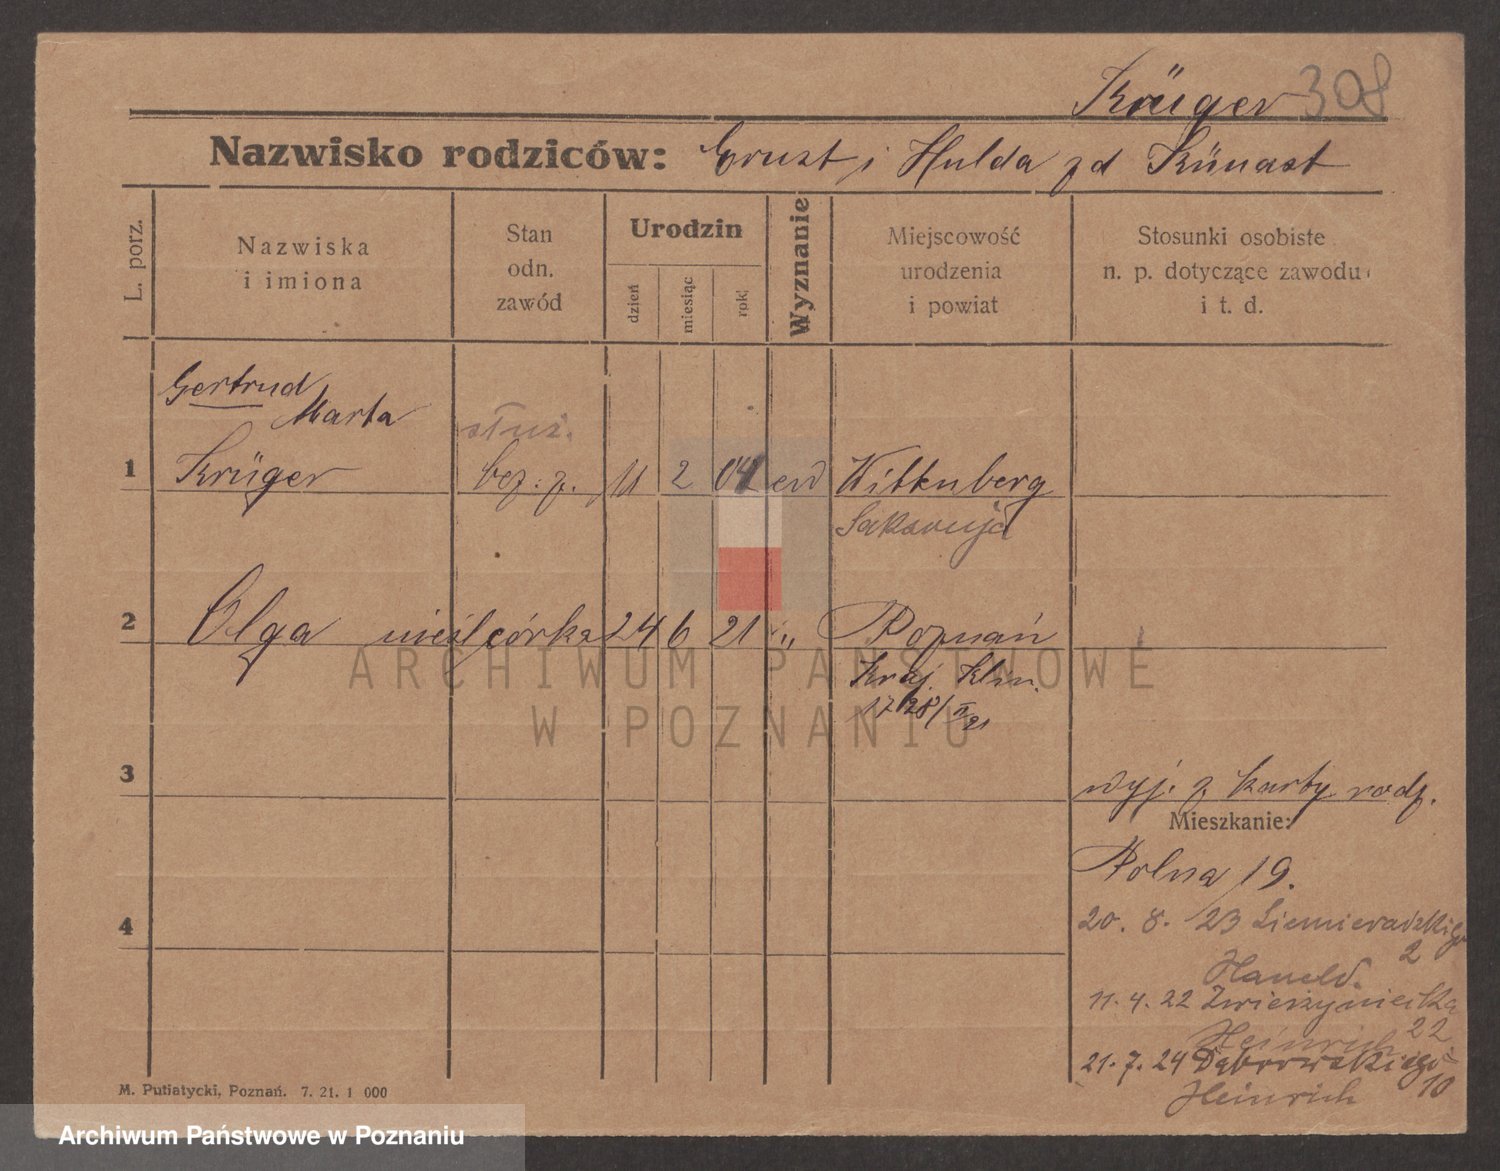 Krüger 308
Nazwisko rodziców: Ernst i Hulda zd Künast
L. porz.
Nazwiska
i imiona
Stan
odn.
zawód
Urodzin
dzień
miesiąc
rok
Wyznanie
Miejscowość
urodzenia
i powiat
Stosunki osobiste
n. p. dotyczące zawodu
i t. d.
Gertrud
Marta
służ.
1 Krüger bez. z. 11 2 04 ew Wittenberg
2 Olga nieśl córka 24 6 21 " Poznań
Kraj. Klin.
ARCHIWUM PAŃSTWOWE
W POZNANIU
3
wyj. z karty rodz.
Mieszkanie:
Polna 19.
4
20. 8. 23 Siemieradzkiego
2
11. 4. 22 Zwierzyniecka
22
Heinrich
21. 7. 24 Dąbrowskiego
10
Heinrich
M. Putiatycki, Poznań. 7. 21. 1 000
Archiwum Państwowe w Poznaniu